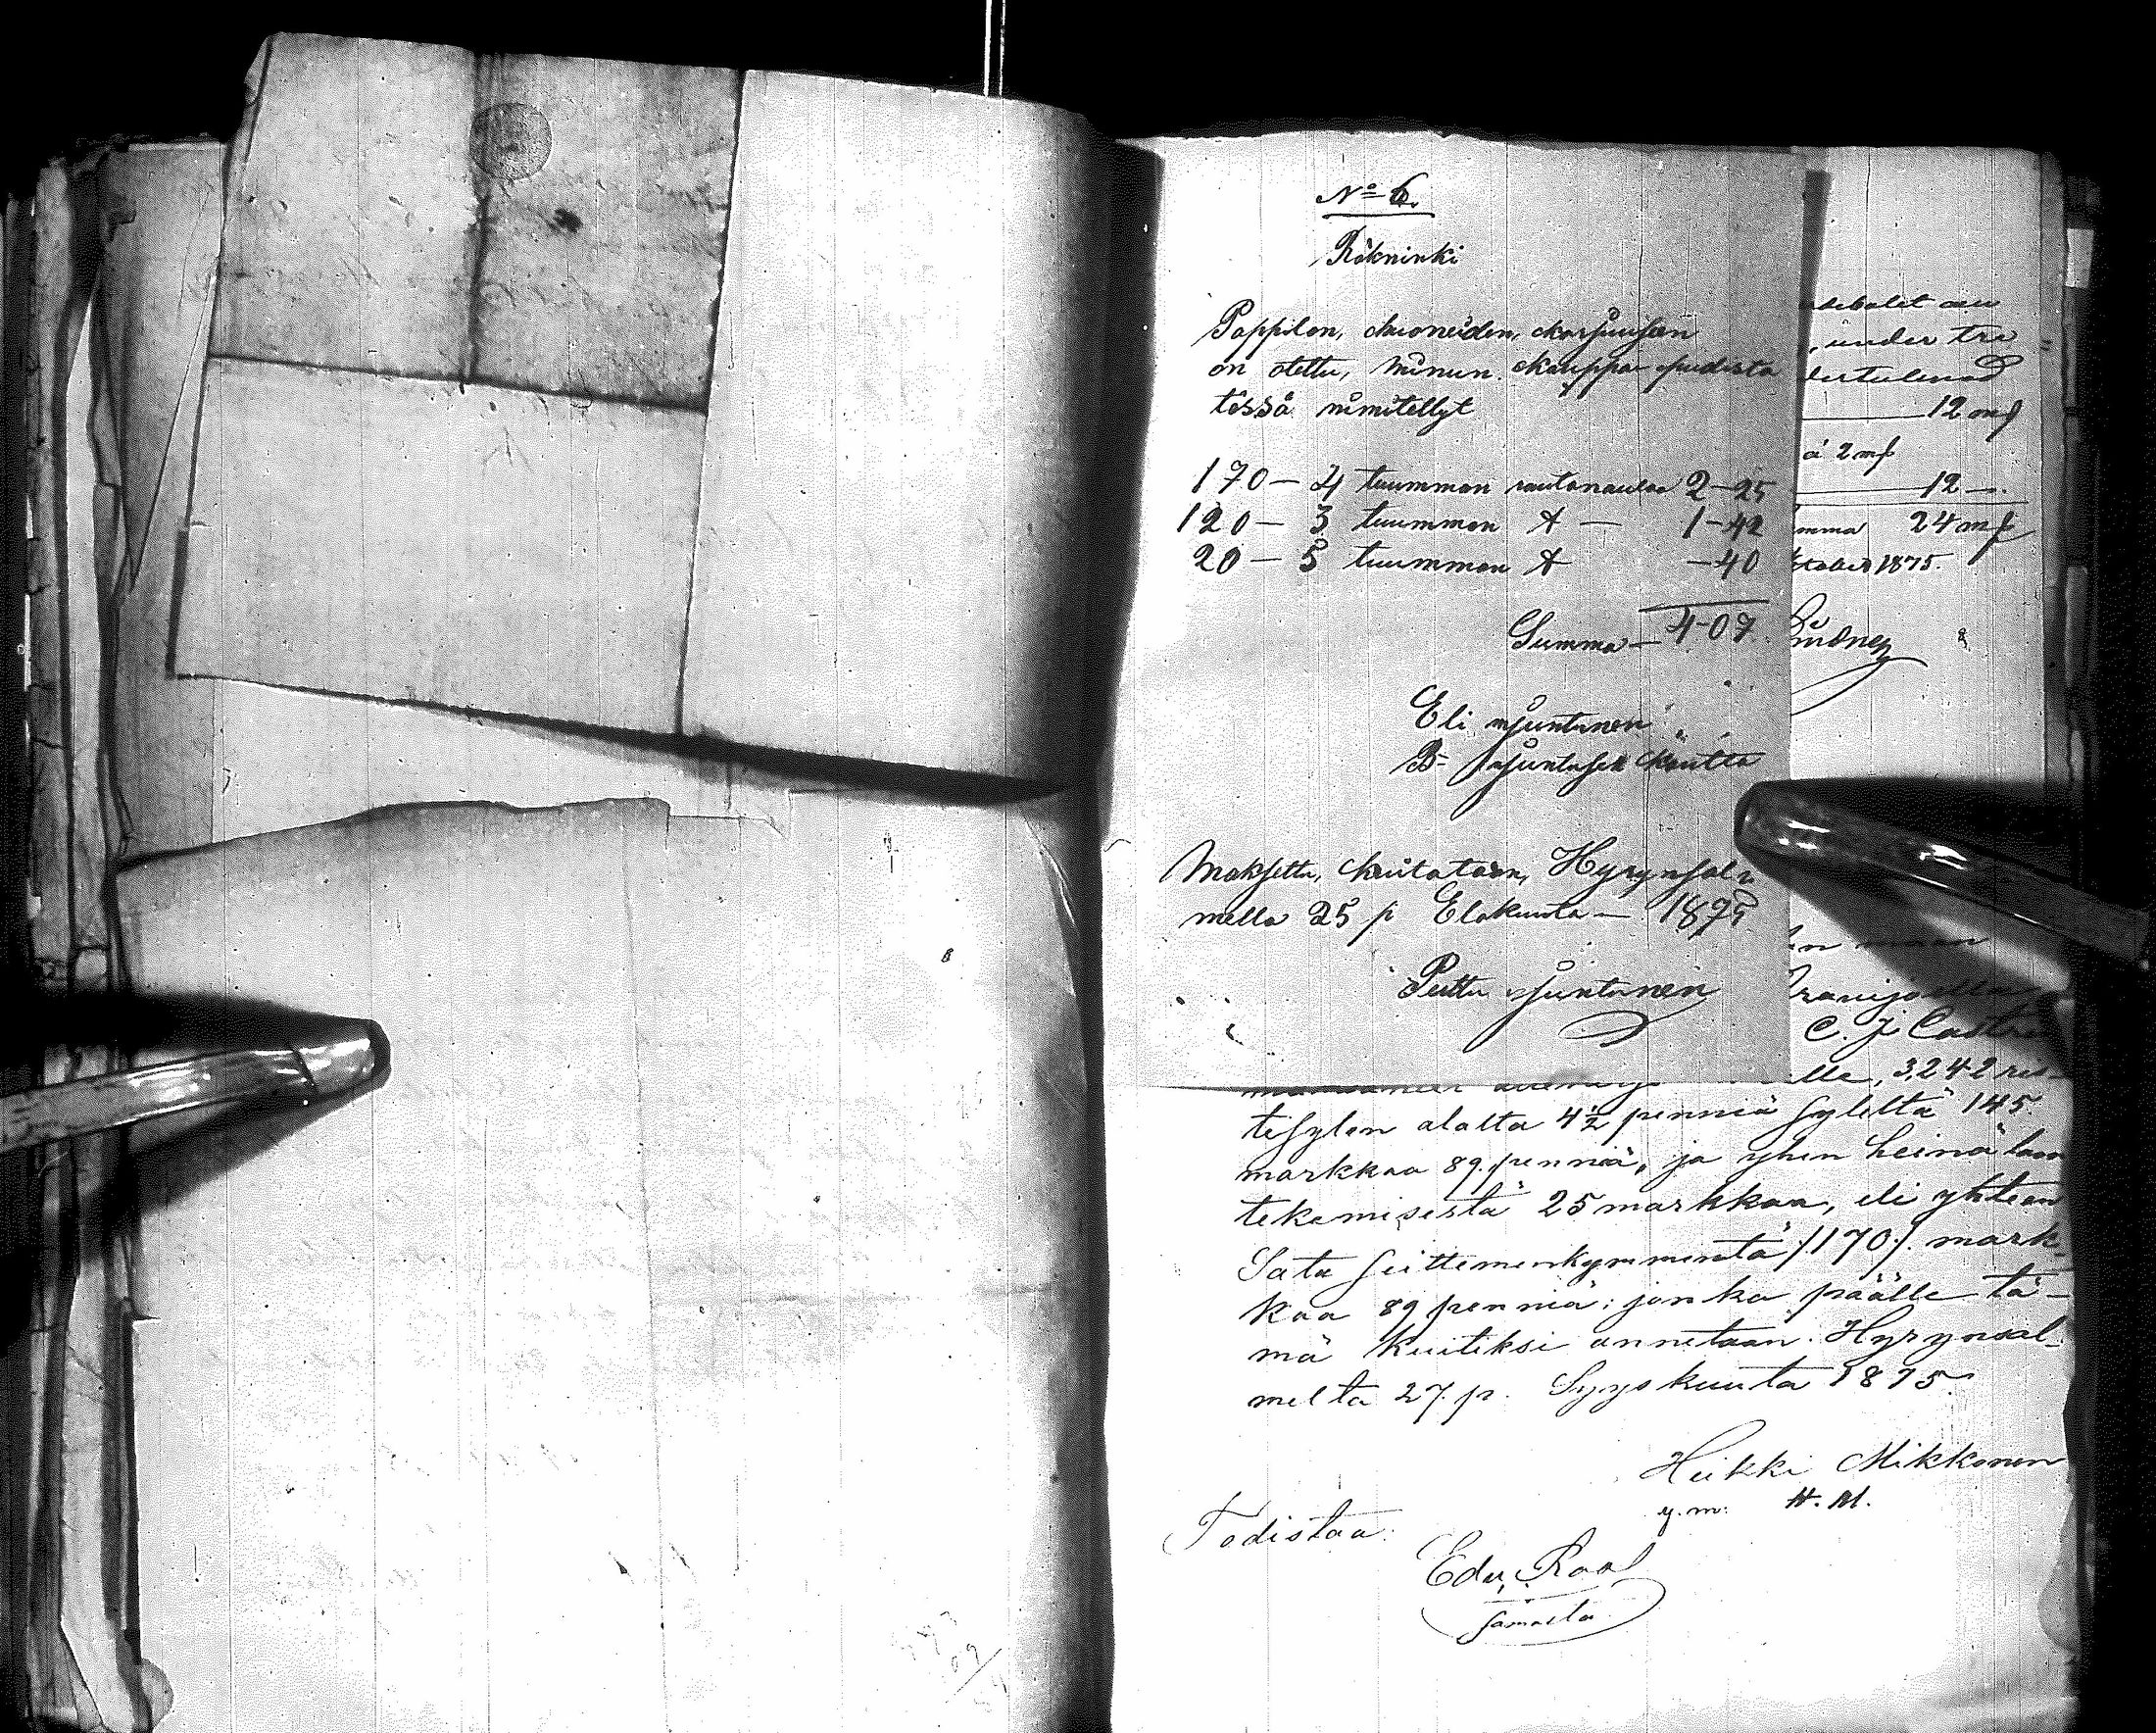 No 6.
Räkninki
Pappilan, huoneiden, korjuuseen
on otettu, minun kauppa puodista
tässä nimitellyt
170 — 4 tuumman rautanaulaa 2–25
120 — 3 tuumman — 1–42
20 — 5 tuumman –40
Summa — 4–07
Eli Juntunen
Juntusen kautta
Maksettu, kuitataan, Hyrynsal
mella 25 p Elokuuta — 1875
Pettu Juntunen
under tre
12 mf
á 2 mf
12 —.
mma 24 mf
ctober 1875.
maan
C. J. Castr
lle, 3,242 ris-
tisylen alalta 4½ penniä syleltä 145
markkaa 89 penniä, ja yhen heinä laon
tekemisestä 25 markkaa, eli yhteen
Sata seittemenkymmentä /:170:/ mark-
kaa 89 penniä; jonka päälle tä-
mä kuiteksi annetaan. Hyrynsal-
melta 27. p. Syyskuuta 1875.
Heikki Mikkonen
y. m: H. M.
Todistaa:
Edv. Raal
samasta